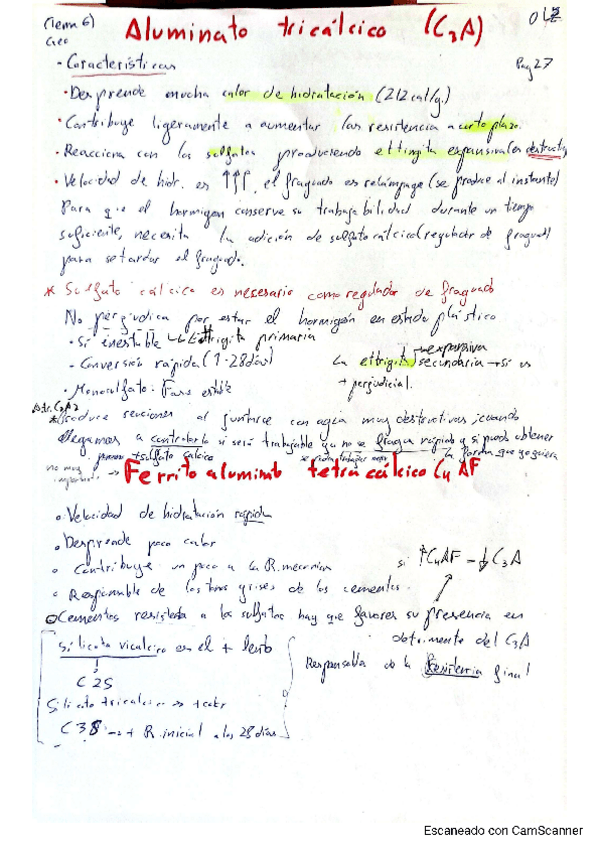 (Tema 6)
Creo
Aluminato tricálcico (C3A)
Pag 27
· Características
· Desprende mucha calor de hidratación (212 cal/g.)
· Contribuye ligeramente a aumentar las resistencia a corto plazo.
· Reacciona con los sulfatos produciendo ettingita expansiva (es destructiva
· Velocidad de hidr. es ↑↑↑, el fraguado es relámpago (se produce al instante)
Para que el hormigón conserve su trabajabilidad durante un tiempo
suficiente, necesita la adición de sulfato cálcico (regulador de fraguado)
para retardar el fraguado.
* Sulfato cálcico es necesario como regulador de fraguado
No perjudica por estar el hormigón en estado plástico
· Si inestable ↳ Ettrigita primaria
· Conversión rápida (1-28 días)
· Monosulfato: Fase estable
La ettrigita secundaria → si es
expansiva
+ perjudicial.
produce reaciones al juntarse con agua muy destructivas, cuando
llegamos a controlarlo si será trabajable ya no se fragua rápido y si puedo obtener
la forma que yo quiera
+ sulfato cálcico
no muy
importante → Ferrito aluminato tetracálcico C4AF
· Velocidad de hidratación rápida
· Desprende poco calor
· Contribuye un poco a la R. mecanica
si ↑C4AF - ↓C3A
· Responsable de los tonos grises de los cementos.
· Cementos resistentes a los sulfatos hay que favorecer su presencia en
detrimento del C3A
Silicato vicalcico es el + lento
C2S
Responsable de la Resistencia final
Silicato tricalcico → + calor
C3S → + R. inicial a los 28 días
Escaneado con CamScanner